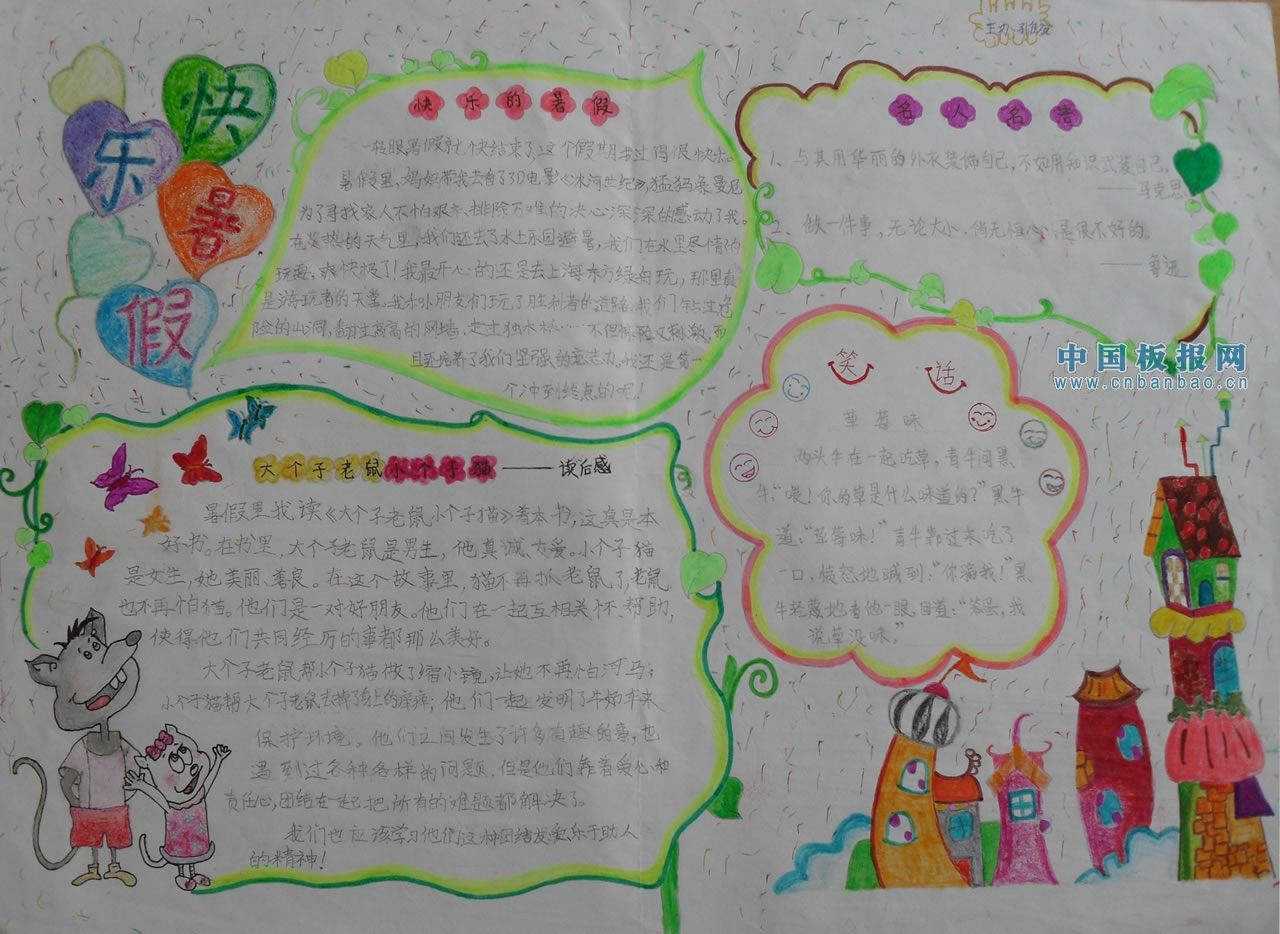 快
乐
暑
假
快乐的暑假
一转眼暑假就快结束了,这个假期我过得很快乐。
暑假里,妈妈带我去看了3D电影《冰河世纪》,猛犸象曼尼
为了寻找家人不怕艰辛、排除万难的决心深深的感动了我。
在炎热的天气里,我们还去了水上乐园避暑,我们在水里尽情的
玩耍,爽快极了!我最开心的还是去上海东方绿舟玩,那里真
是游玩者的天堂。我和小朋友们玩了胜利者的道路,我们钻过危
险的山洞,翻过高高的网墙,走过独木桥……不但惊险又刺激,而
且还培养了我们坚强的意志力,我还是第一
个冲到终点的呢!
主办:
名人名言
1、与其用华丽的外衣装饰自己,不如用知识武装自己。
——马克思
2、做一件事,无论大小,倘无恒心,是很不好的。
——鲁迅
中国板报网
www.cnbanbao.cn
笑话
草莓味
两头牛在一起吃草,青牛问黑
牛:“喂!你的草是什么味道的?”黑牛
道:“草莓味!”青牛靠过来吃了
一口,愤怒地喊到:“你骗我!”黑
牛轻蔑地看他一眼,回道:“笨蛋,我
说草没味。”
大个子老鼠小个子猫——读后感
暑假里我读《大个子老鼠小个子猫》着本书,这真是本
好书。在书里,大个子老鼠是男生,他真诚、友爱。小个子猫
是女生,她美丽、善良。在这个故事里,猫不再抓老鼠了,老鼠
也不再怕猫。他们是一对好朋友。他们在一起互相关怀、帮助,
使得他们共同经历的事都那么美好。
大个子老鼠帮小个子猫做了缩小镜,让她不再怕河马;
小个子猫帮大个子老鼠去掉了身上的痒痒;他们一起发明了牛奶车来
保护环境。他们之间发生了许多有趣的事,也
遇到过各种各样的问题,但是他们靠着爱心和
责任心,团结在一起把所有的难题都解决了。
我们也应该学习他们这种团结友爱、乐于助人
的精神!